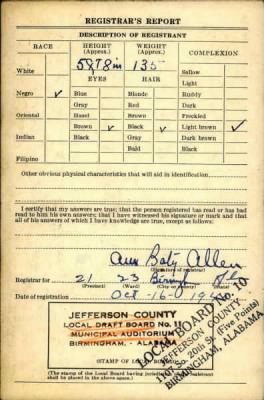 REGISTRAR'S REPORT
DESCRIPTION OF REGISTRANT
RACE HEIGHT (Approx.) WEIGHT (Approx.) COMPLEXION
White 135 Sallow
EYES HAIR Light
Negro ✓ Blue Blonde Ruddy
Gray Red Dark
Oriental Hazel Brown Freckled
Brown ✓ Black ✓ Light brown ✓
Indian Black Gray Dark brown
Bald Black
Filipino
Other obvious physical characteristics that will aid in identification
I certify that my answers are true; that the person registered has read or has had
read to him his own answers; that I have witnessed his signature or mark and that
all of his answers of which I have knowledge are true, except as follows:
Allen
(Signature of registrar)
Registrar for 21 23
(Precinct) (Ward)
Date of registration Oct-16-
JEFFERSON COUNTY
LOCAL DRAFT BOARD No. 11
MUNICIPAL AUDITORIUM
BIRMINGHAM, - ALABAMA
(STAMP OF LOCAL BOARD)
LOCAL BOARD No. 10
JEFFERSON COUNTY
So. 20th St. (Five Points)
BIRMINGHAM, ALABAMA
(The stamp of the Local Board having jurisdiction
shall be placed in the above space.)